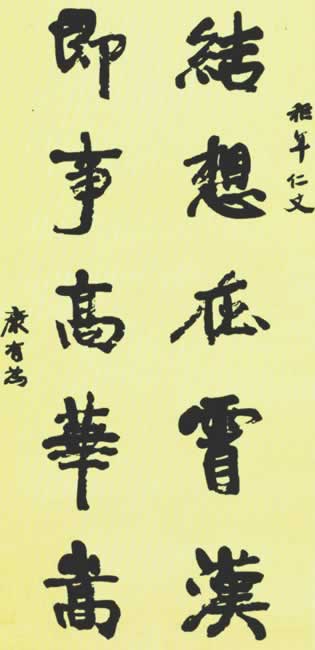 稚年仁丈
結想在霄漢
即事高華嵩
康有為